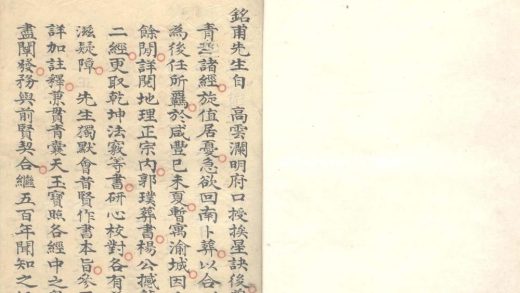 銘甫先生自 高雲瀾明府口授挨星訣後
青囊諸經旋值居憂急欲回南卜葬以合
為後任所羈於咸豐己未夏暫寓渝城因
餘閒詳閱地理正宗內郭璞葬書楊公撼
二經更取乾坤法竅等書研心校對各有
滋疑障 先生獨默會昔賢作書本旨參
詳加註釋兼貫青囊天玉寶照各經中之
盡闡發務與前賢契合繼五百年聞知之